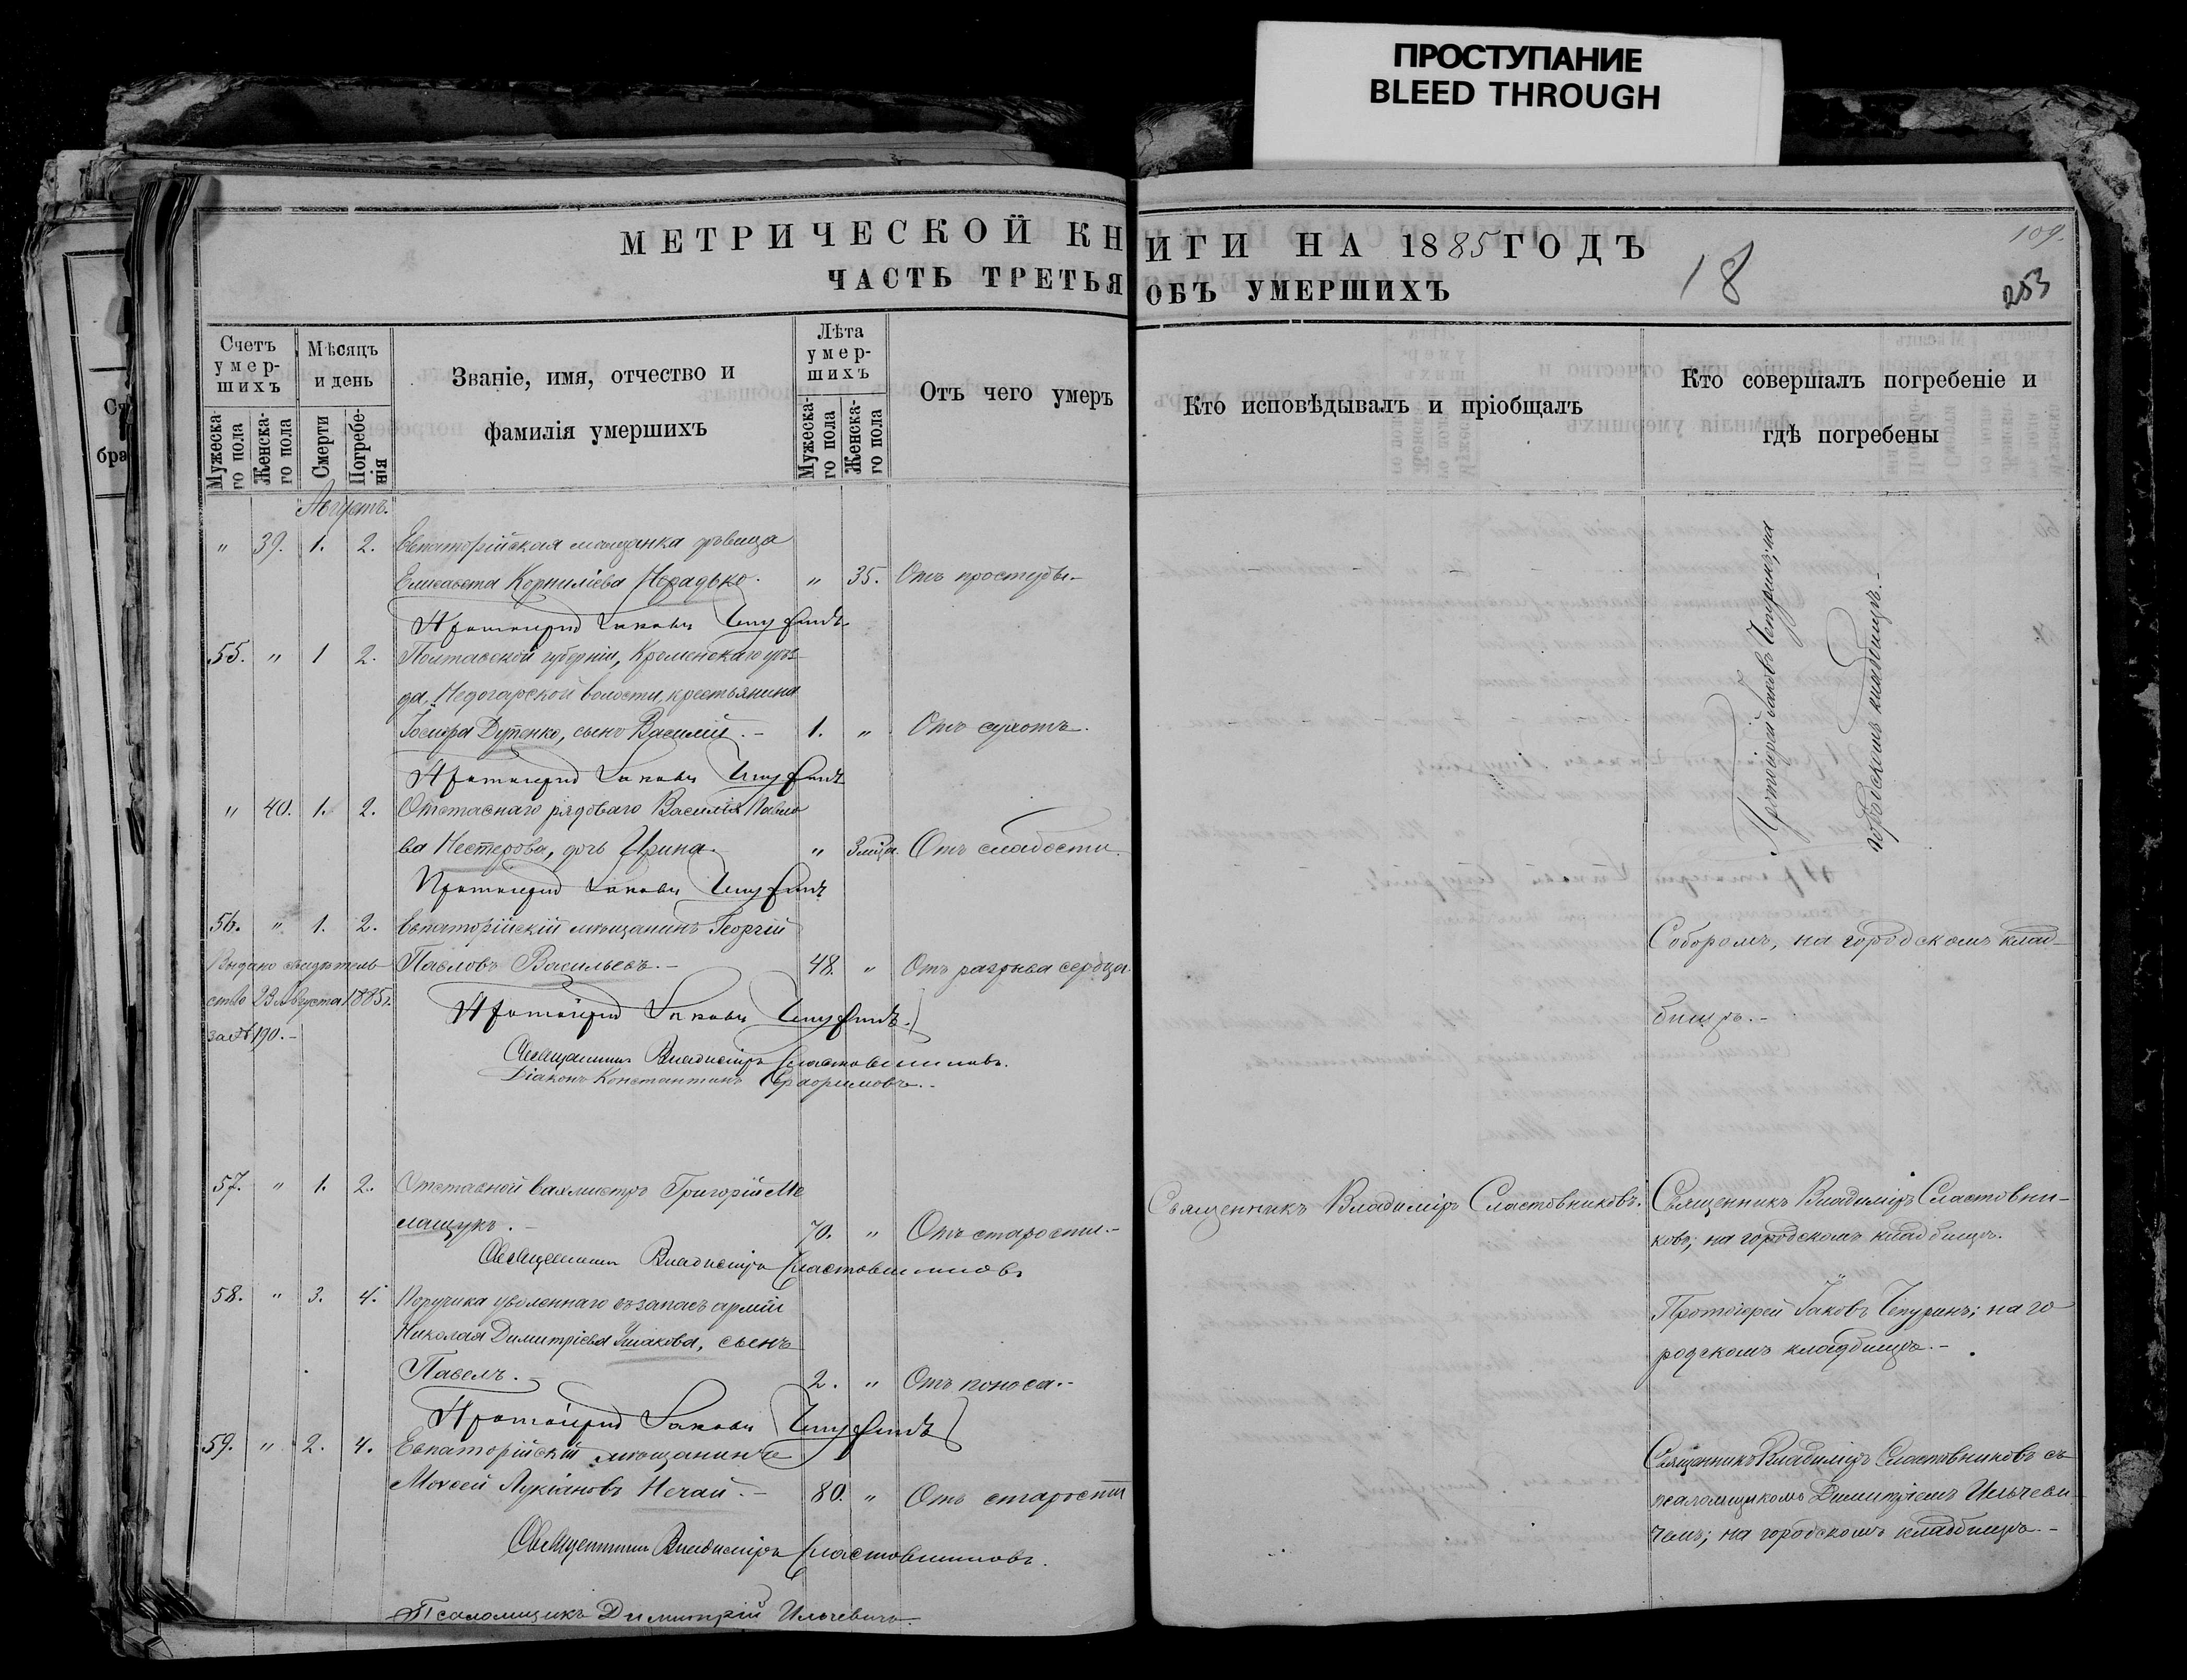 ПРОСТУПАНИЕ
BLEED THROUGH
МЕТРИЧЕСКОЙ КНИГИ НА 1885 ГОДЪ
ЧАСТЬ ТРЕТЬЯ ОБЪ УМЕРШИХЪ
18
109.
253
Счетъ умершихъ
Мужескаго пола
Женскаго пола
Мѣсяцъ и день
Смерти
Погребенія
Званіе, имя, отчество и
фамилія умершихъ
Лѣта умершихъ
Мужескаго пола
Женскаго пола
Отъ чего умеръ
Кто исповѣдывалъ и пріобщалъ
Кто совершалъ погребеніе и
гдѣ погребены
Августъ.
" 39. 1. 2. Евпаторійская мѣщанка дѣвица
Елисавета Корниліева " 35. Отъ простуды.-
Протоіерей Іаковъ Чепуринъ.
55. " 1 2. Полтавской губерніи, Кременскаго уѣз-
да, Недогарской волости, крестьянина
Іосифа Дупенко, сынъ Василій.- 1. " Отъ сухотъ.
Протоіерей Іаковъ Чепуринъ
" 40. 1. 2. Отставнаго рядоваго Василія Павло
ва Нестерова, дочь Ирина. " 3 мѣсца. Отъ слабости.
Протоіерей Іаковъ Чепуринъ
Протоіерей Іаковъ Чепуринъ; на
городскомъ кладбищѣ.-
56. " 1. 2. Евпаторійскій мѣщанинъ Георгій
Соборомъ, на городскомъ клад-
Выдано свидѣтель- Павловъ Васильевъ.- 48. " Отъ разрыва сердца.
ство 23 Августа 1885 г.
за № 190.-
бищѣ.-
Протоіерей Іаковъ Чепуринъ.
Священникъ Владиміръ Сластовниковъ.
Діаконъ Константинъ
57. " 1. 2. Отставной вахмистръ Григорій Ме
лащукъ.- 70. " Отъ старости.-
Священникъ Владиміръ Сластовниковъ.
Священникъ Владиміръ Сластовни-
ковъ; на городскомъ кладбищѣ.
Священникъ Владиміръ Сластовниковъ
58. " 3. 4. Поручика уволеннаго въ запасъ арміи
Николая Димитріева Ушакова, сынъ
Павелъ.- 2. " Отъ поноса.-
Протоіерей Іаковъ Чепуринъ; на го
родскомъ кладбищѣ.-
Протоіерей Іаковъ Чепуринъ
59. " 2. 4. Евпаторійскій мѣщанинъ
Моѵсей Лукіановъ Нечай.- 80. " Отъ старости
Священникъ Владиміръ Сластовниковъ съ
псаломщикомъ Димитріемъ Ильчеви-
чемъ; на городскомъ кладбищѣ.-
Священникъ Владиміръ Сластовниковъ.
Псаломщикъ Димитрій Ильчевичъ.